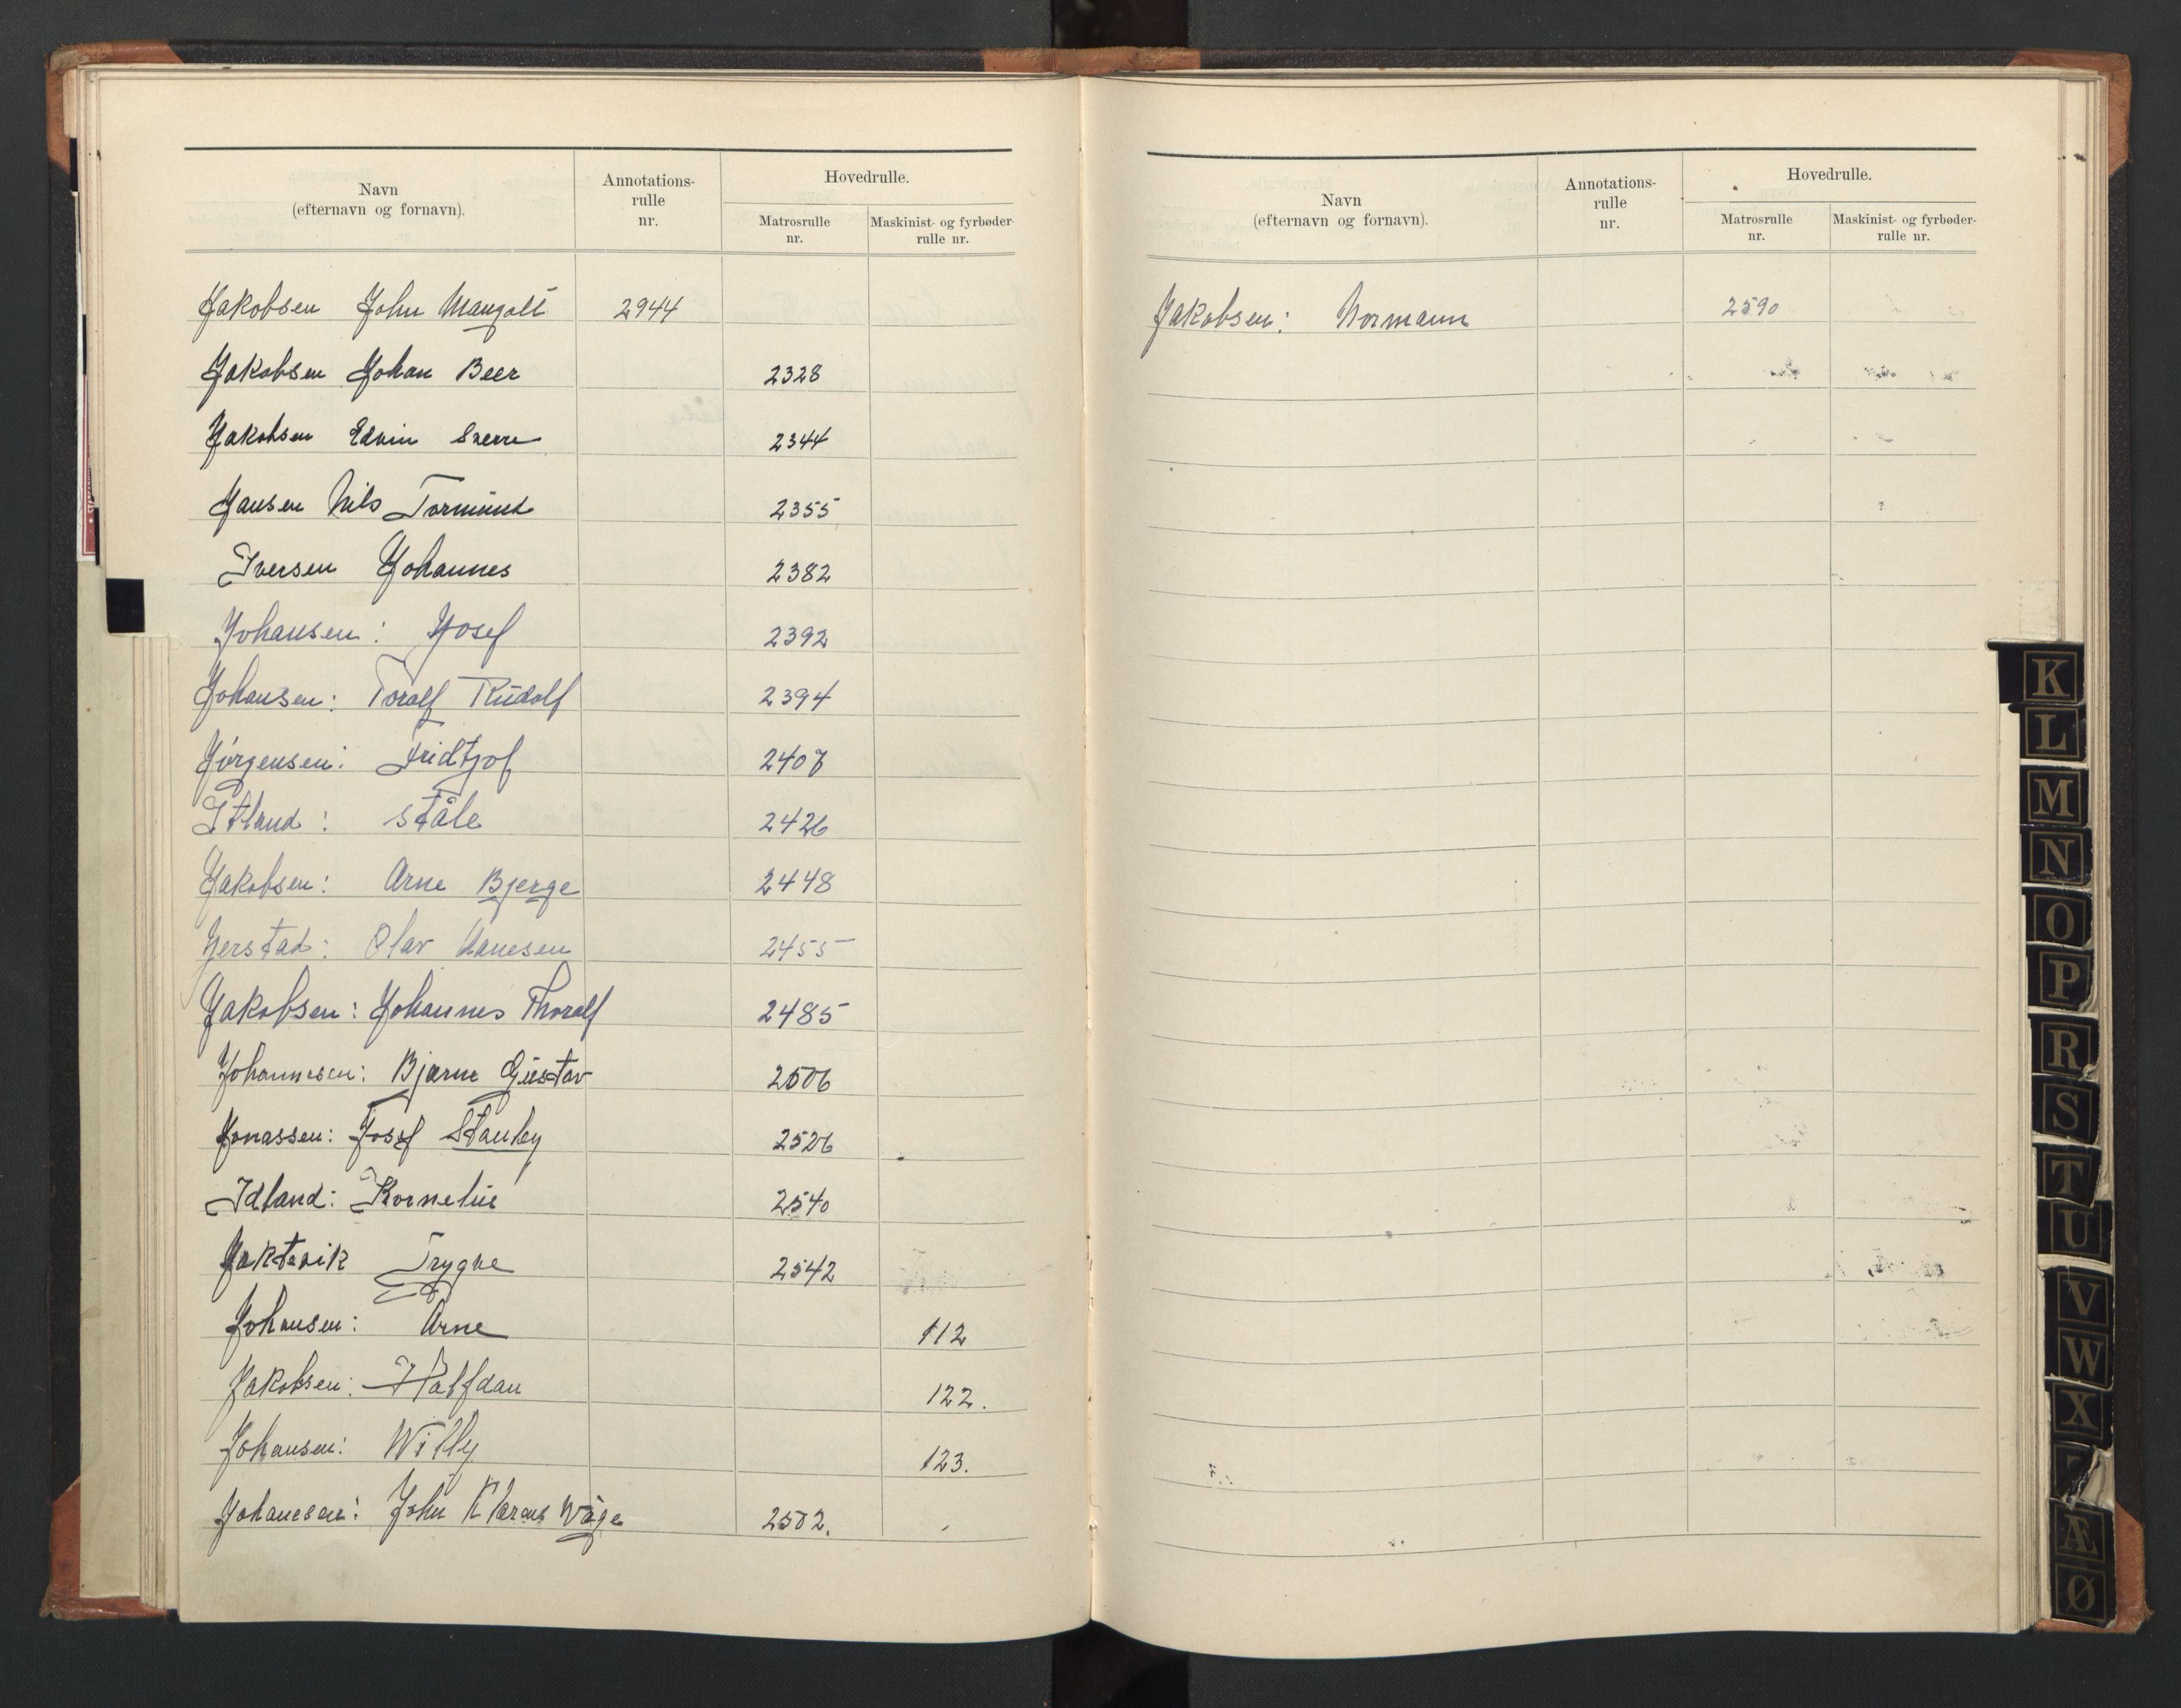 Navn
(efternavn og fornavn).
Annotations-
rulle
nr.
Hovedrulle.
Matrosrulle
nr.
Maskinist- og fyrbøder-
rulle nr.
Jakobsen John Mangoll 2944
Jakobsen Johan Beer 2328
Jakobsen Edvin Sverre 2344
Jansen Nils Tormund 2355
Iversen Johannes 2382
Johansen: Josef 2392
Johansen: Toralf Rudolf 2394
Jørgensen: Fridtjof 2407
Itland: Ståle 2426
Jakobsen: Arne Bjerge 2448
Jerstad: Olav Hansen 2455
Jakobsen: Johannes Thoralf 2485
Johannesen: Bjarne Gustav 2506
Jonassen: Josef Stanley 2526
Idland: Kornelius 2540
Jaktevik Trygve 2542
Johansen: Arne 112
Jakobsen: Halfdan 122.
Johansen: Willy 123.
Johanesen: John Klaraus Våge 2502.
Navn
(efternavn og fornavn).
Annotations-
rulle
nr.
Hovedrulle.
Matrosrulle
nr.
Maskinist- og fyrbøder-
rulle nr.
Jakobsen: Normann 2590
K
L
M
N
O
P
R
S
T
U
V
W
X
Æ
Ø